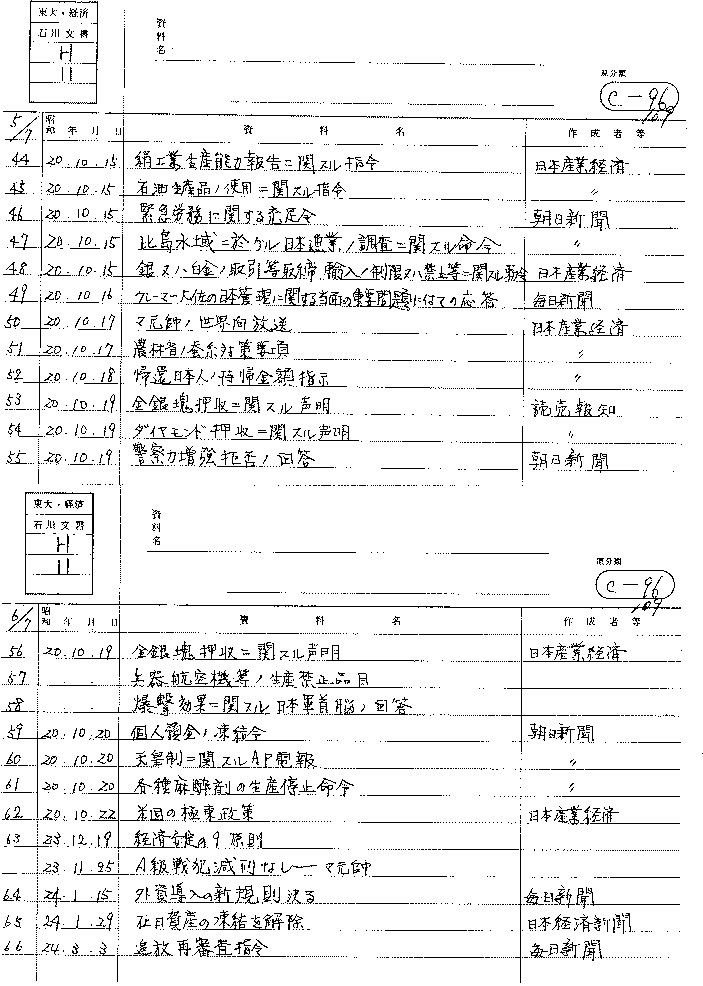 東大・経済
石川文書
H
11
資料名
原分類
C-96
109
5/7 昭和 年 月 日 資 料 名 作 成 者 等
44 20.10.15 絹工業生産能力報告ニ関スル指令 日本産業経済
45 20.10.15 石油生産品ノ使用ニ関スル指令 〃
46 20.10.15 緊急労務に関する充足令 朝日新聞
47 20.10.15 比島水域ニ於ケル日本漁業ノ調査ニ関スル命令 〃
48 20.10.15 銀又ハ白金ノ取引等取締、輸入ノ制限又ハ禁止等ニ関スル勅令 日本産業経済
49 20.10.16 クレーマー大佐の日本管理に関する当面の重要問題に付ての応答 毎日新聞
50 20.10.17 マ元帥ノ世界向放送 日本産業経済
51 20.10.17 農林省ノ蚕糸対策要項 〃
52 20.10.18 帰還日本人ノ持帰金額指示 〃
53 20.10.19 金銀塊押収ニ関スル声明 読売報知
54 20.10.19 ダイヤモンド押収ニ関スル声明 〃
55 20.10.19 警察力増強拒否ノ回答 朝日新聞
東大・経済
石川文書
H
11
資料名
原分類
C-96
109
6/7 昭和 年 月 日 資 料 名 作 成 者 等
56 20.10.19 金銀塊押収ニ関スル声明 日本産業経済
57 . . 兵器航空機等ノ生産禁止品目
58 . . 爆撃効果ニ関スル日本軍首脳ノ回答
59 20.10.20 個人預金ノ凍結令 朝日新聞
60 20.10.20 天皇制ニ関スルAP電報 〃
61 20.10.20 各種麻酔剤の生産停止命令 〃
62 20.10.22 米国の極東政策 日本産業経済
63 23.12.19 経済安定の9原則
23.11.25 A級戦犯減刑なし──マ元帥
64 24.1.15 外資導入の新規則決る 毎日新聞
65 24.1.29 在日資産の凍結を解除 日本経済新聞
66 24.3.3 追放再審査指令 毎日新聞